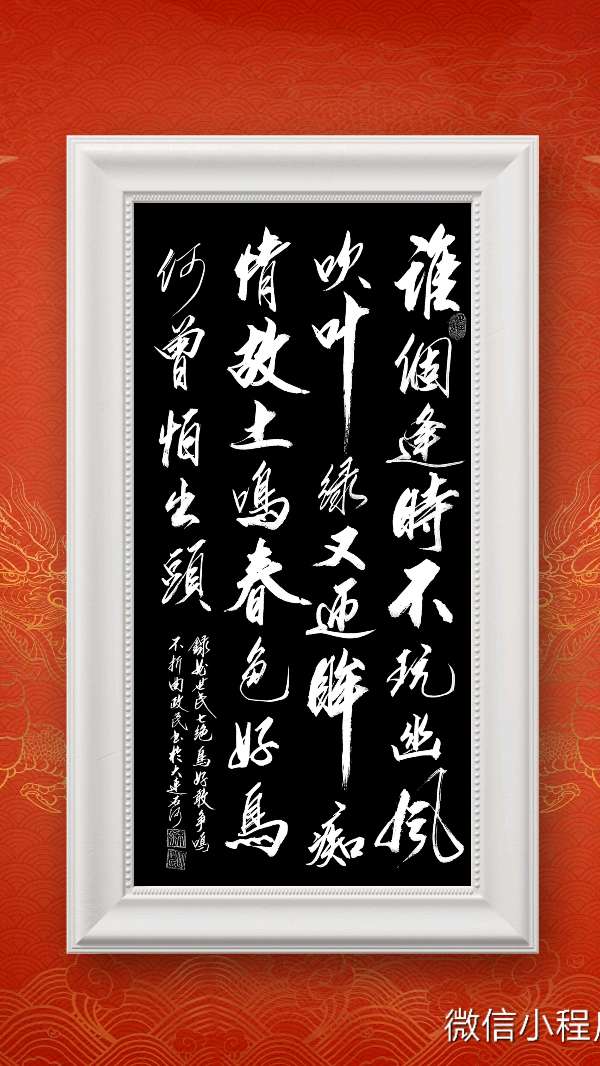 誰個逢時不玩幽風
吹叶綠又迎眸痴
情故土鳴春色好鳥
何曾怕出頭
錄世民七绝鳥好敢争鳴
不折曲政民书於大連石河
微信小程